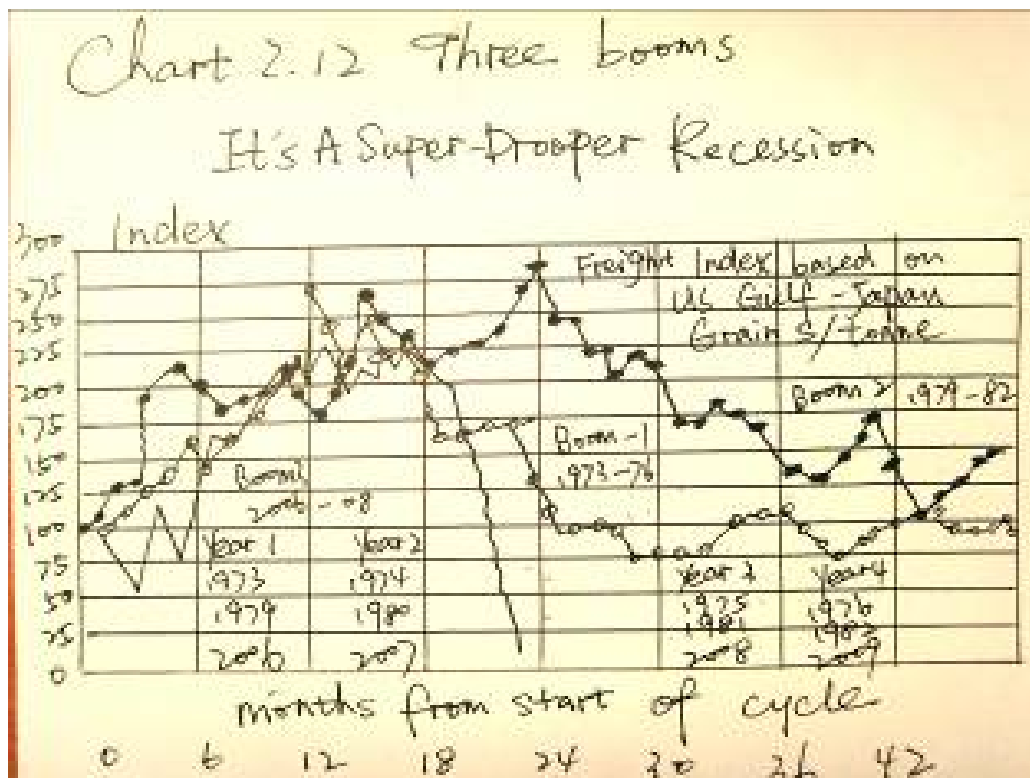 Chart 2.12 Three booms
It's A Super-Drooper Recession
Index
300
275
250
225
200
175
150
125
100
75
50
25
0
Freight Index based on
US Gulf - Japan
Grain $/tonne
Boom 2 1979-82
Boom-1
1973-76
Boom3
2006-08
Year 1 Year 2
1973 1974
1979 1980
2006 2007
Year 3 Year 4
1975 1976
1981 1982
2008 2009
months from start of cycle
0 6 12 18 24 30 36 42